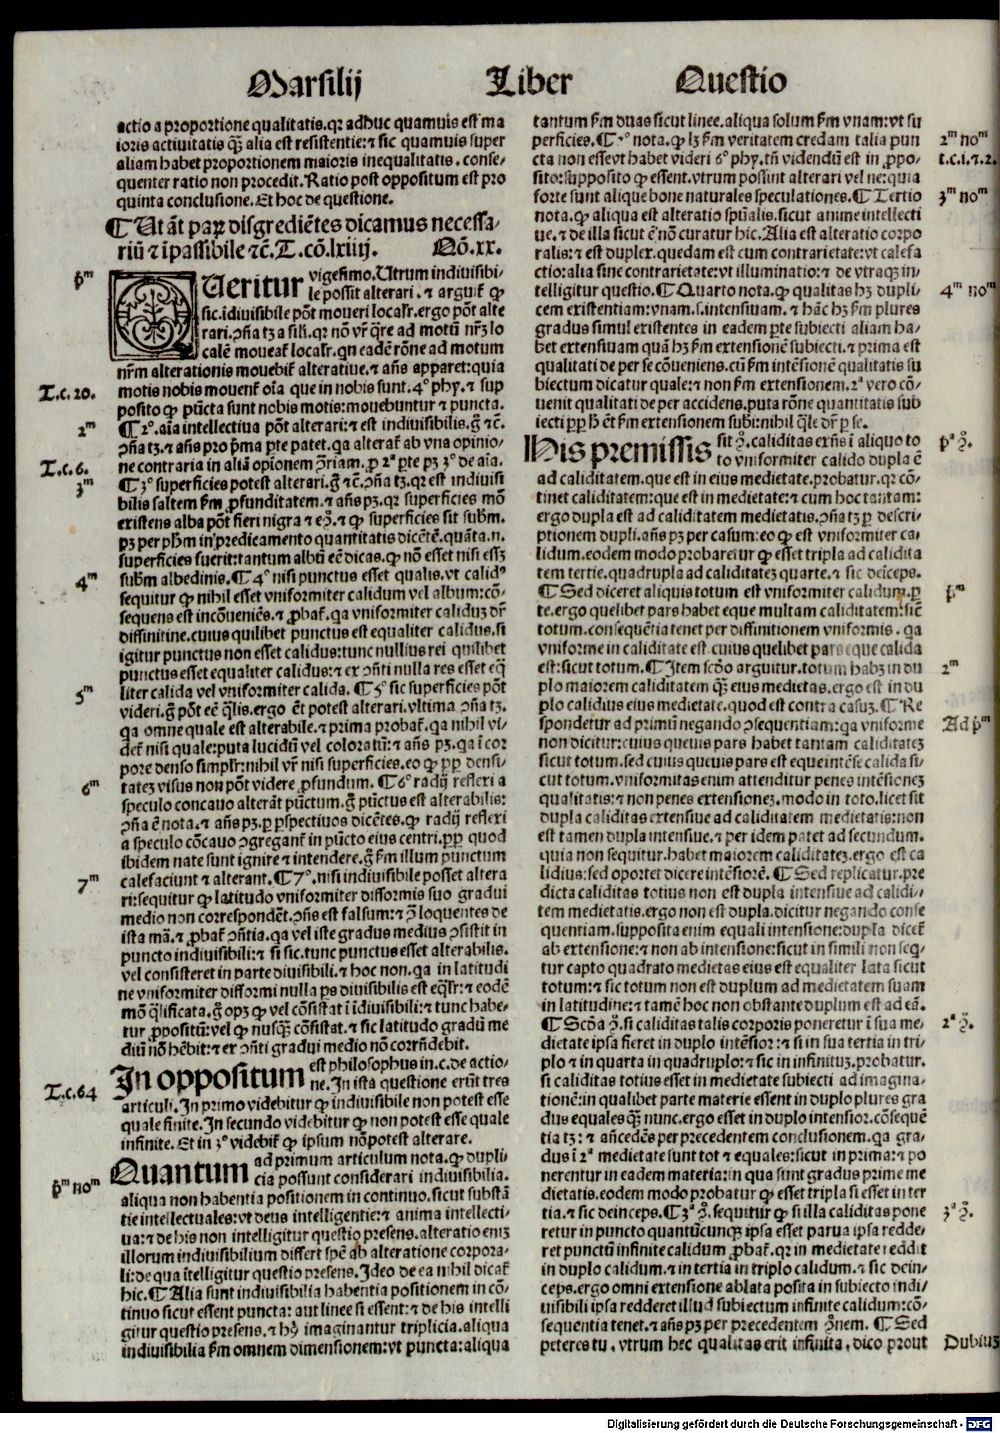 Marsilij Liber Questio
actio a proportione qualitatis.qr adhuc quamuis est ma
ioris actiuitatis q̄ꝫ alia est resistentie:⁊ sic quamuis super
aliam habet proportionem maioris inequalitatis. conse-
quenter ratio non procedit. Ratio post oppositum est pro
quinta conclusione. Et hoc de questione.
¶ Ut āt paꝝ disgrediētes dicamus necessa-
riū ⁊ īpassibile ⁊c̄. T. cō. lxiiij. Nō. xx.
p̄ᵐ
Queritur vigesimo. Utrum indiuisibi-
le possit alterari. ⁊ arguit̄ ꝙ
sic.īdiuisibile pōt moueri localr̄.ergo pōt alte
rari.ꝯn̄a tꝫ a sili.qr nō vr̄ q̄re ad motū nr̄ꝫ lo
calē moueat̄ localr̄.qn eadē rōne ad motum
nr̄m alterationis mouebit̄ alteratiue.⁊ an̄s apparet:quia
T.c.20. motis nobis mouent̄ oīa que in nobis sunt.4° phy.⁊ sup
posito ꝙ pūcta sunt nobis motis:mouebuntur ⁊ puncta.
2ᵐ ¶ 2°.aīa intellectiua pōt alterari:⁊ est indiuisibilis.g̊ ⁊c̄.
ꝯn̄a tꝫ.⁊ an̄s pro p̄ma p̄te patet.qa alterat̄ ab vna opinio-
T.c.6. ne contraria in aliā opionem ꝯ̄riam.ꝓ 2ª p̄te pꝫ 3° de aīa.
3ᵐ ¶ 3° superficies potest alterari.g̊ ⁊c̄.ꝯn̄a tꝫ.qr est indiuisi
bilis saltem s̄m ꝓfunditatem.⁊ an̄s pꝫ.qr superficies mō
existens alba pōt fieri nigra ⁊ eꝯ̄.⁊ ꝙ superficies sit subm̄.
pꝫ per ph̄m in predicamento quantitatis dicētē.quāta.n.
superficies fuerit:tantum albū eē dicas.ꝙ nō esset nisi essꝫ
4ᵐ subm̄ albedinis. ¶ 4° nisi punctus esset qualis.vt calid⁹
sequitur ꝙ nihil esset vniformiter calidum vel album:cō-
sequens est incōueniēs.⁊ ꝓbat̄.qa vniformiter calidū dr̄
diffinitiue.cuius quilibet punctus est equaliter calidus.si
igitur punctus non esset calidus:tunc nullius rei quilibet
punctus esset equaliter calidus:⁊ ex ꝯn̄ti nulla res esset eq̄
5ᵐ liter calida vel vniformiter calida. ¶ 5° sic superficies pōt
videri.g̊ pōt eē q̄lis.ergo ēt potest alterari.vltima ꝯn̄a tꝫ.
qa omne quale est alterabile.⁊ prima probat̄.qa nihil vi-
det̄ nisi quale:puta lucidū vel coloratū:⁊ an̄s pꝫ.qa ī cor
pore denso simplr̄:nihil vr̄ nisi superficies.eo ꝙ ꝓp densi-
6ᵐ tatēz visus non pōt videre ꝓfundum. ¶ 6° radij reflexi a
speculo concauo alterāt pūctum.g̊ pūctus est alterabilis:
ꝯn̄a ē nota.⁊ an̄s pꝫ.ꝑ ꝑspectiuos dicētes.ꝙ radij reflexi
a speculo cōcauo ꝯgregant̄ in pūcto eius centri.ꝓp quod
ibidem nate sunt ignire ⁊ intendere.g̊ s̄m illum punctum
7ᵐ calefaciunt ⁊ alterant. ¶ 7°.nisi indiuisibile posset altera
ri:sequitur ꝙ latitudo vniformiter difformis suo gradui
medio non correspondēt.ꝯn̄s est falsum:⁊ ꝯ̄ loquentes de
ista mā.⁊ ꝓbat̄ ꝯn̄tia.qa vel iste gradus medius ꝯsistit in
puncto indiuisibili:⁊ si sic.tunc punctus esset alterabilis.
vel consisteret in parte diuisibili.⁊ hoc non.qa in latitudi
ne vniformiter difformi nulla ps diuisibilis est eq̄lr̄:⁊ eodē
mō q̄lificata.g̊ opꝫ ꝙ vel cōsistat ī īdiuisibili:⁊ tunc habe-
tur ꝓpositū:vel ꝙ nusq̄ꝫ cōsistat.⁊ sic latitudo gradū me
diū nō hēbit:⁊ ex ꝯn̄ti gradui medio nō corrn̄debit.
T.c.64 In oppositum est philosophus in.c.de actio-
ne. In ista questione erūt tres
articuli. In primo videbitur ꝙ indiuisibile non potest esse
quale finite. In secundo videbitur ꝙ non potest esse quale
infinite. Et in 3° videbit̄ ꝙ ipsum nō potest alterare.
p̄ᵐ noᵐ Quantum ad primum articulum nota.ꝙ dupli-
cia possunt considerari indiuisibilia.
aliqua non habentia positionem in continuo.sicut substā
tie intellectuales:vt deus intelligentie:⁊ anima intellecti-
ua:⁊ de his non intelligitur questio presens.alteratio eniꝫ
illorum indiuisibilium differt spē ab alteratione corpora-
li:de qua ītelligitur questio presens. Ideo de ea nihil dicat̄
hic. ¶ Alia sunt indiuisibilia habentia positionem in cō-
tinuo sicut essent puncta: aut linee si essent:⁊ de his intelli
gitur questio presens.⁊ hꝫ imaginantur triplicia.aliqua
indiuisibilia s̄m omnem dimensionem:vt puncta:aliqua
tantum s̄m duas sicut linee.aliqua solum s̄m vnam:vt su
2ᵐ noᵐ perficies. ¶ 2° nota.ꝙ lꝫ s̄m veritatem credam talia pun
t.c.1.⁊.2. cta non esse:vt habet videri 6° phy.tn̄ videndū est in ꝓpo-
sito:supposito ꝙ essent.vtrum possint alterari vel ne:quia
3ᵐ noᵐ forte sunt alique bone naturales speculationes. ¶ Tertio
nota.ꝙ aliqua est alteratio spūalis.sicut anime intellecti
ue.⁊ de illa sicut ē nō curatur hic. Alia est alteratio corpo
ralis:⁊ est duplex.quedam est cum contrarietate:vt calefa
ctio:alia sine contrarietate:vt illuminatio:⁊ de vtraqꝫ in-
4ᵐ noᵐ telligitur questio. ¶ Quarto nota.ꝙ qualitas hꝫ dupli-
cem existentiam:vnam.s.intensiuam.⁊ hāc hꝫ s̄m plures
gradus simul existentes in eadem p̄te subiecti aliam ha-
bet extensiuam quā hꝫ s̄m extensionē subiecti.⁊ prima est
qualitati de per se cōueniens.cū s̄m intensionē qualitatis su
biectum dicatur quale:⁊ non s̄m extensionem.2ª vero cō-
uenit qualitati de per accidens.puta rōne quantitatis sub
iecti ꝓp h̄ ēt s̄m extensionem subi:nihil q̄le dr̄ ꝑ se.
pª ꝯ̄. His premissis sit ꝯ̄.caliditas exn̄s ī aliquo to
to vniformiter calido dupla ē
ad caliditatem.que est in eius medietate.probatur.qr cō-
tinet caliditatem:que est in medietate:⁊ cum hoc tantam:
ergo dupla est ad caliditatem medietatis.ꝯn̄a tꝫ ꝑ descri-
ptionem dupli.an̄s pꝫ per casum:eo ꝙ est vniformiter ca-
lidum.eodem modo probaretur ꝙ esset tripla ad calidita
tem tertie.quadrupla ad caliditateꝫ quarte.⁊ sic deīceps.
p̄ᵐ ¶ Sed diceret aliquis totum est vniformiter calidum.ꝑ
te.ergo quelibet pars habet eque multam caliditatem:sic̄
totum.consequētia tenet per diffinitionem vniformis. qa
vniforme in caliditate est cuius quelibet pars eque calida
2ᵐ est:sicut totum. ¶ Item scd̄o arguitur.totum habꝫ in du
plo maiorem caliditatem q̄ꝫ eius medietas.ergo est in du
plo calidius eius medietate.quod est contra casuꝫ. ¶ Re
Ad p̄ᵐ spondetur ad primū negando ꝯsequentiam:qa vniforme
non dicitur:cuius queuis pars habet tantam caliditateꝫ
sicut totum.sed cuius queuis pars est eque intēse calida si-
cut totum.vniformitas enim attenditur penes intēsioneꝫ
qualitatis:⁊ non penes extensioneꝫ.modo in toto.licet sit
dupla caliditas extensiue ad caliditatem medietatis:non
est tamen dupla intensiue.⁊ per idem patet ad secundum.
quia non sequitur.habet maiorem caliditateꝫ.ergo est ca
lidius:sed oportet dicere intēsiorē. ¶ Sed replicatur.pre
dicta caliditas totius non est dupla intensiue ad calidi-
tem medietatis.ergo non est dupla.dicitur negando conse
quentiam.supposita enim equali intensione:dupla dicet̄
ab extensione:⁊ non ab intensione:sicut in simili non seq̄-
tur capto quadrato medietas eius est equaliter lata sicut
totum:⁊ sic totum non est duplum ad medietatem suam
in latitudine:⁊ tamē hoc non obstante duplum est ad eā.
2ª ꝯ̄. ¶ Scd̄a ꝯ̄.si caliditas talis corporis poneretur ī sua me-
dietate ipsa fieret in duplo intēsior:⁊ si in sua tertia in tri-
plo ⁊ in quarta in quadruplo:⁊ sic in infinituꝫ.probatur.
si caliditas totius esset in medietate subiecti ad imagina-
tionē:in qualibet parte materie essent in duplo plures gra
dus equales q̄ꝫ nunc.ergo esset in duplo intensior.cōsequē
tia tꝫ:⁊ an̄cedēs per precedentem conclusionem.qa gra-
dus ī 2ª medietate sunt tot ⁊ equales:sicut in prima:⁊ po
nerentur in eadem materia:in qua sunt gradus prime me
dietatis.eodem modo probatur ꝙ esset tripla si esset in ter
3ª ꝯ̄. tia.⁊ sic deinceps. ¶ 3ª ꝯ̄.sequitur ꝙ si illa caliditas pone
retur in puncto quantūcunqꝫ ipsa esset parua ipsa redde-
ret punctū infinite calidum ꝓbat̄.qr in medietate reddit
in duplo calidum.⁊ in tertia in triplo calidum.⁊ sic dein-
ceps.ergo omni extensione ablata posita in subiecto indi-
uisibili ipsa redderet illud subiectum infinite calidum:cō-
sequentia tenet.⁊ an̄s pꝫ per precedentem ꝯ̄nem. ¶ Sed
Dubiuꝫ peteres tu. vtrum hec qualitas erit infinita. dico prout
Digitalisierung gefördert durch die Deutsche Forschungsgemeinschaft - DFG